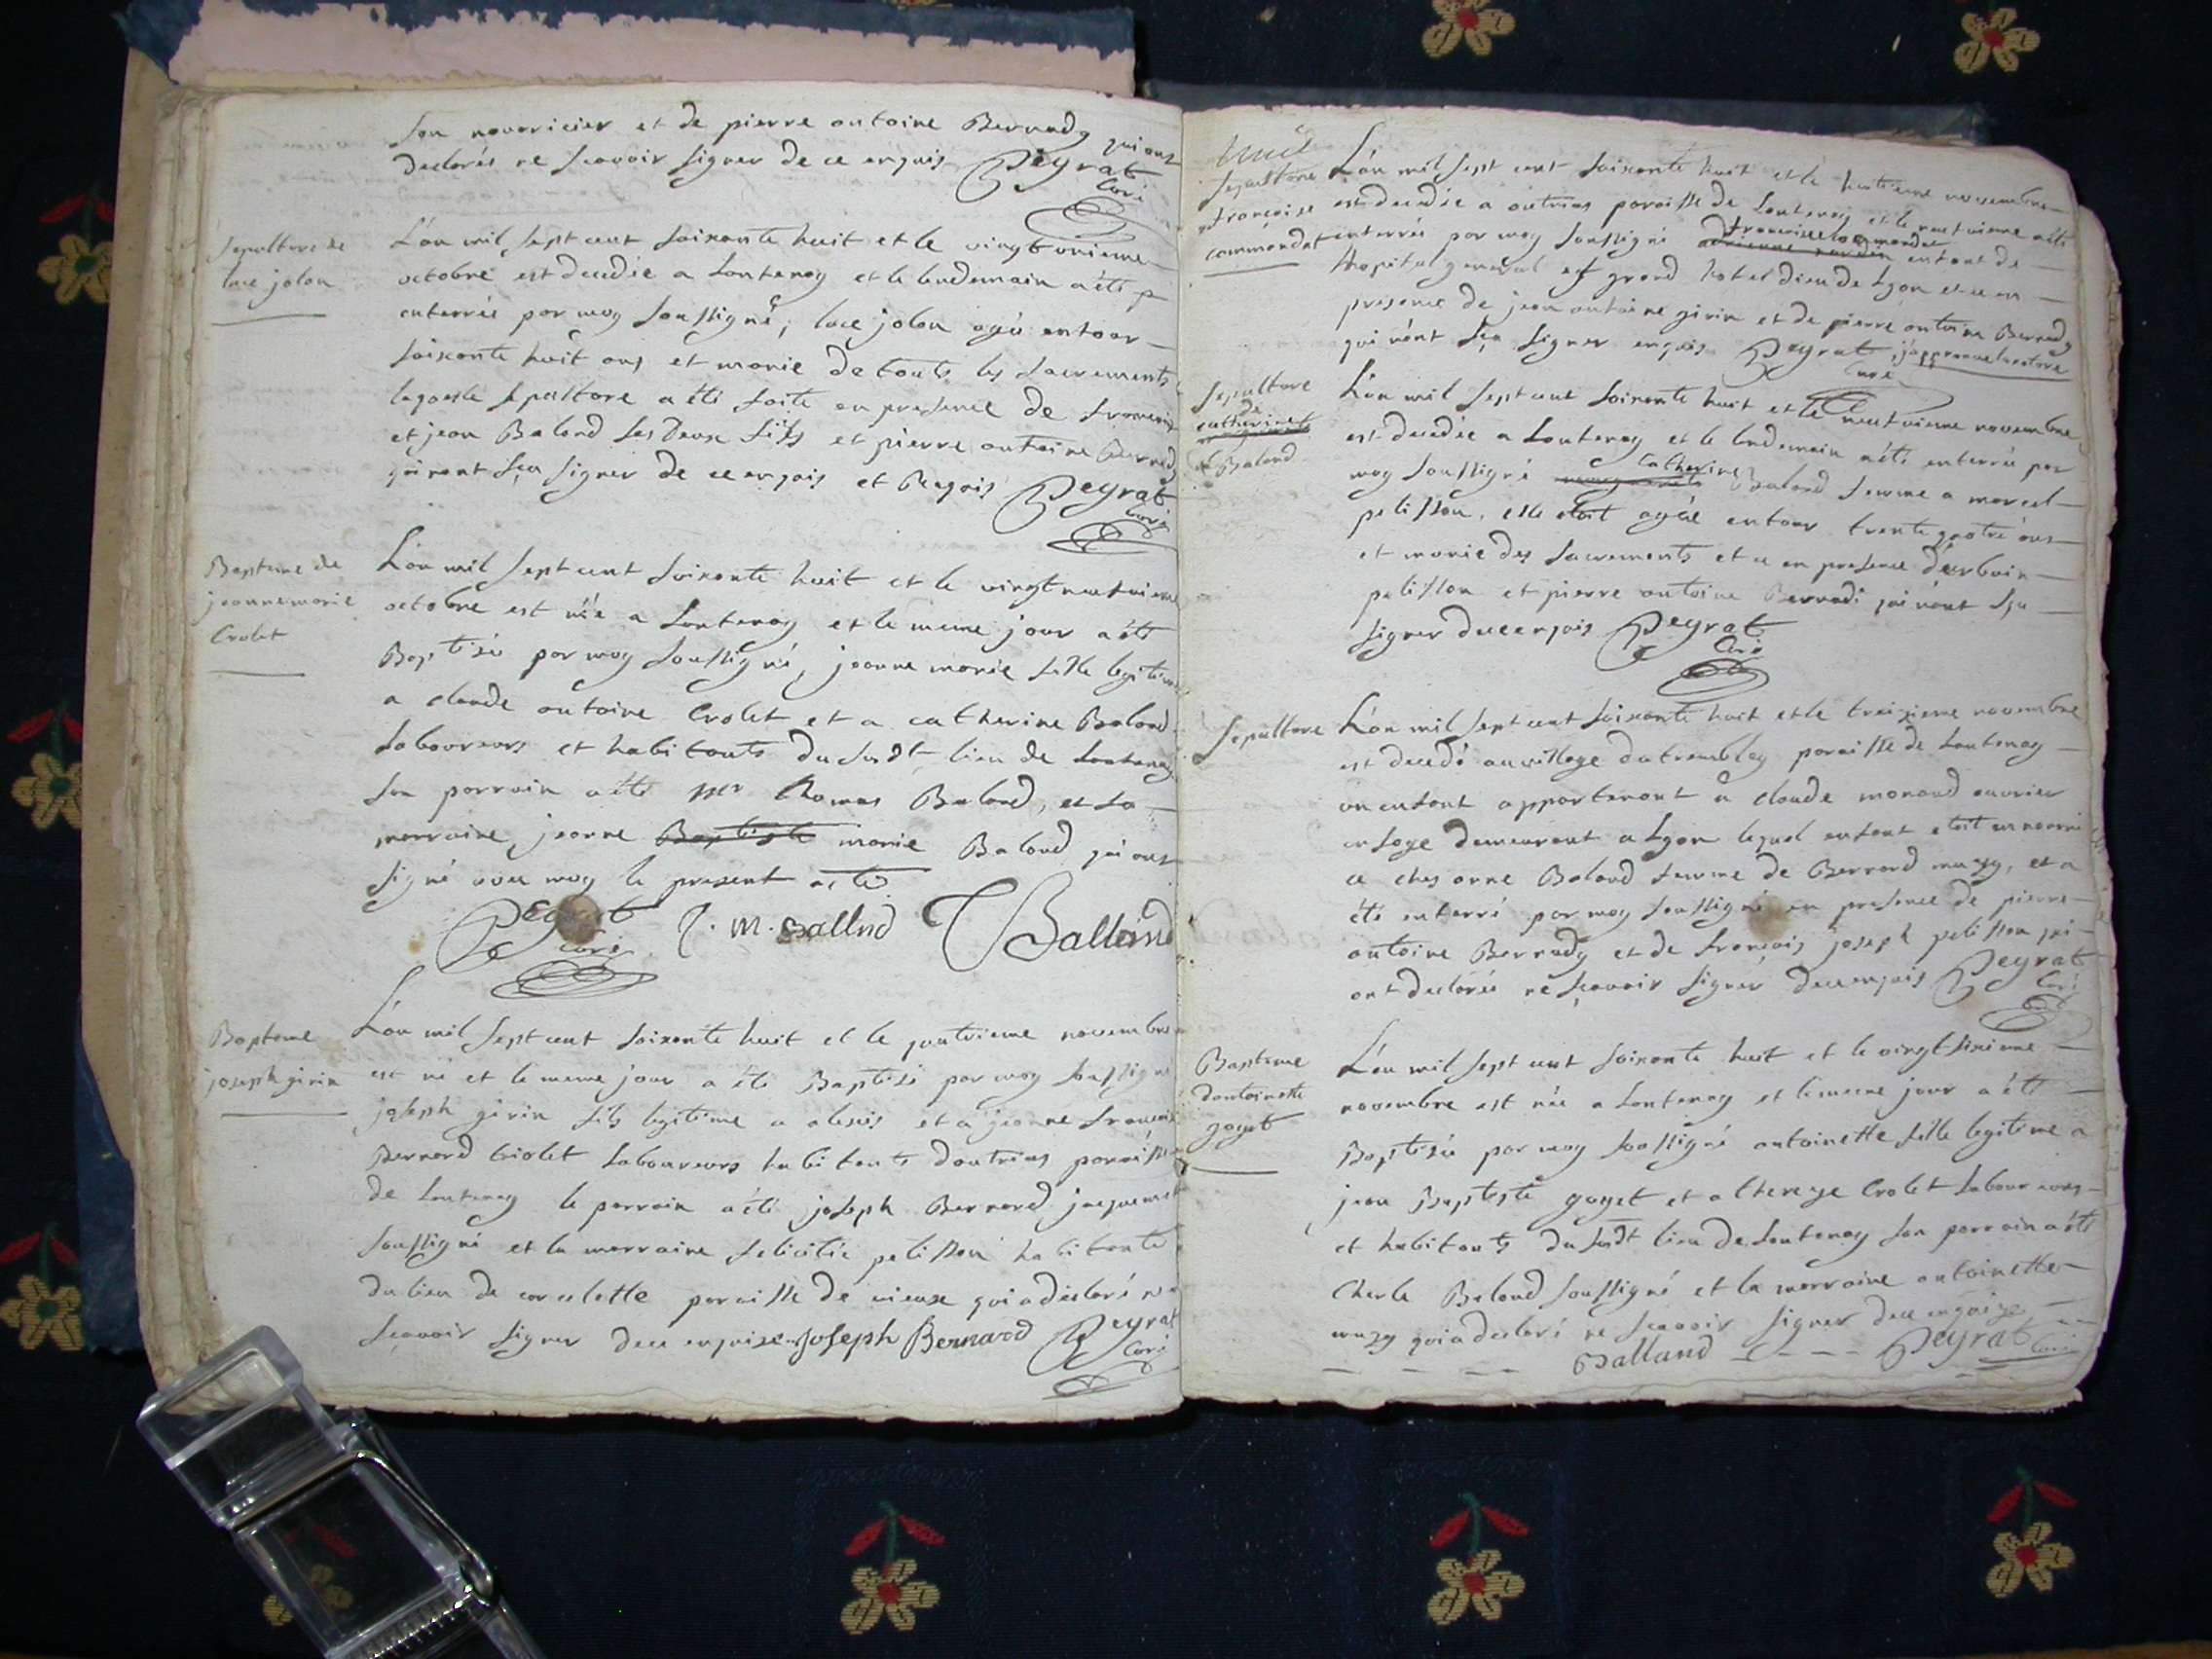 son nouricier et de pierre antoine Bernady qui ont
declarés ne scavoir signer de ce enquis Peyrat
Curé
Sepulture de
luce jolon
L'an mil sept cent soixante huit et le vingt onieme
octobre est decedée a Lontenay et le lendemain a été
enterrée par moy soussigné, luce jolon agée entour
soixante huit ans et munie de touts les sacrements
laquelle sepulture a été faite en presence de francois
et jean Baland ses deux fils et pierre antoine Bernady
qui nont sçu signer de ce enquis et Requis Peyrat
Curé
Bapteme de
jeanne marie
Crolet
L'an mil sept cent soixante huit et le vingt neuvieme
octobre est née a Lontenay et le meme jour a été
Baptisée par moy soussigné, jeanne marie fille legitime
a claude antoine Crolet et a catherine Baland
laboureurs et habitants du susdt lieu de Lontenay
son parrain a été Mr thomas Baland, et sa
marraine, jeanne Baptiste marie Baland qui ont
signé avec moy le present acte
Peyrat Curé J. M. Balland T Balland
Bapteme
joseph girin
L'an mil sept cent soixante huit et le quatrieme novembre
est né et le meme jour a été Baptisé par moy soussigné
joseph girin fils legitime a alexis et a jeanne francoise
Bernard triolet laboureurs habitants d'outrias paroisse
de Lontenay le parrain a été joseph Bernard
soussigné et la marraine felicitée pelisson habitante
du lieu de corcelette paroisse de vieux qui a declaré ne
scavoir signer de ce enquise joseph Bernard Peyrat
Curé
Sepulture
francoise
commandat
L'an mil sept cent soixante huit et le huitieme novembre
est decedée a outrias paroisse de Lontenay et le neuvieme a été
enterrée par moy soussigné francoise commandat enfant de
l'hopital general et grand hotel dieu de Lyon et ce en
presence de jean antoine girin et de pierre antoine Bernady
qui n'ont sçu signer enquis Peyrat j'approuve
curé
Sepulture
de
catherine
Baland
L'an mil sept cent soixante huit et le neuvieme novembre
est decedée a Lontenay et le lendemain a été enterrée par
moy soussigné catherine Baland femme a marcel
pelisson, elle etoit agée entour trente quatre ans
et munie des sacrements et ce en presence d'urbain
pelisson et pierre antoine Bernadi qui n'ont sçu
signer de ce enquis Peyrat
Curé
Sepulture
L'an mil sept cent soixante huit et le treizieme novembre
est decedé au village du tremblay paroisse de Lontenay
un enfant appartenant a claude monand ouvrier
en soye demeurant a Lyon lequel enfant etoit en nourri
ce chez anne Baland femme de Bernard muzy, et a
été enterré par moy soussigné en presence de pierre
antoine Bernady et de francois joseph pelisson qui
ont declarés ne sçavoir signer de ce enquis Peyrat
Curé
Bapteme
d'antoinette
goyet
L'an mil sept cent soixante huit et le vingt sixieme
novembre est née a Lontenay et le meme jour a été
Baptisée par moy soussigné antoinette fille legitime a
jean Baptiste goyet et a thereze Crolet laboureurs
et habitants du susdt lieu de Lontenay son parrain a été
Charle Baland soussigné et la marraine antoinette
muzy qui a declaré ne scavoir signer de ce enquise
Balland Peyrat Curé